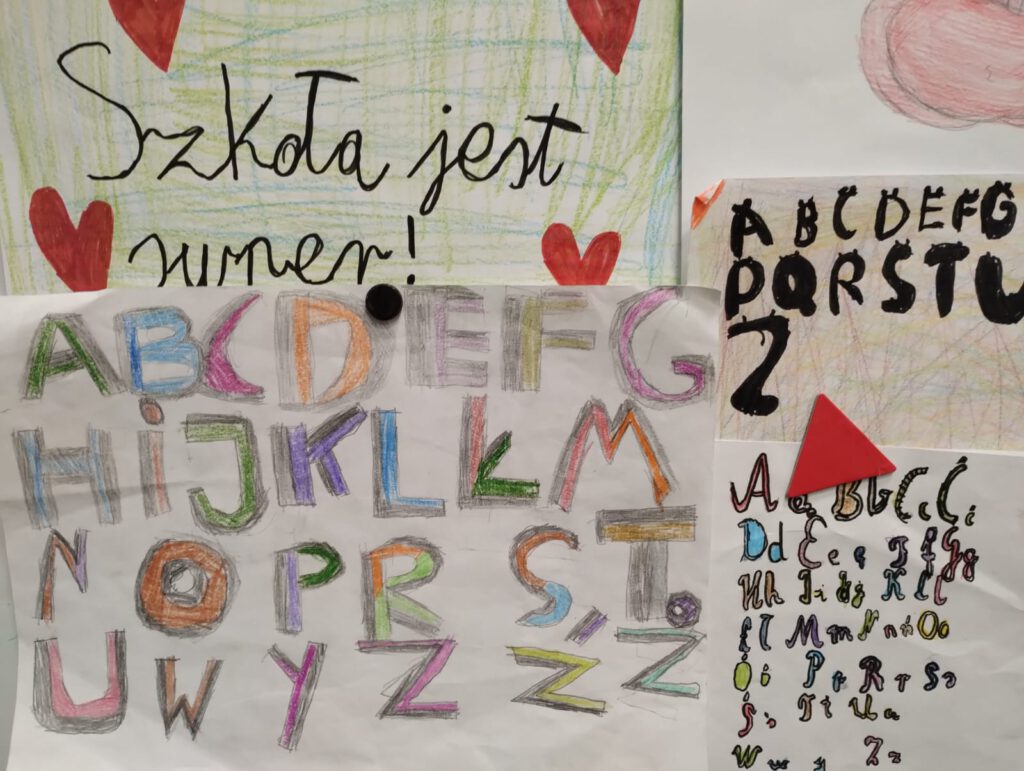 Szkoła jest
super!
A B C D E F G
H i J K L Ł M
N O P R S, T.
U W Y Z Z Z
A B C D E F G
P Q R S T U
Z
A a B b C c Ć ć
D d E e ę f G g
H h I i J j K Ł
M m N n ń O o
Ó P p R r S s
Ś ś T t U u
W w y Z z